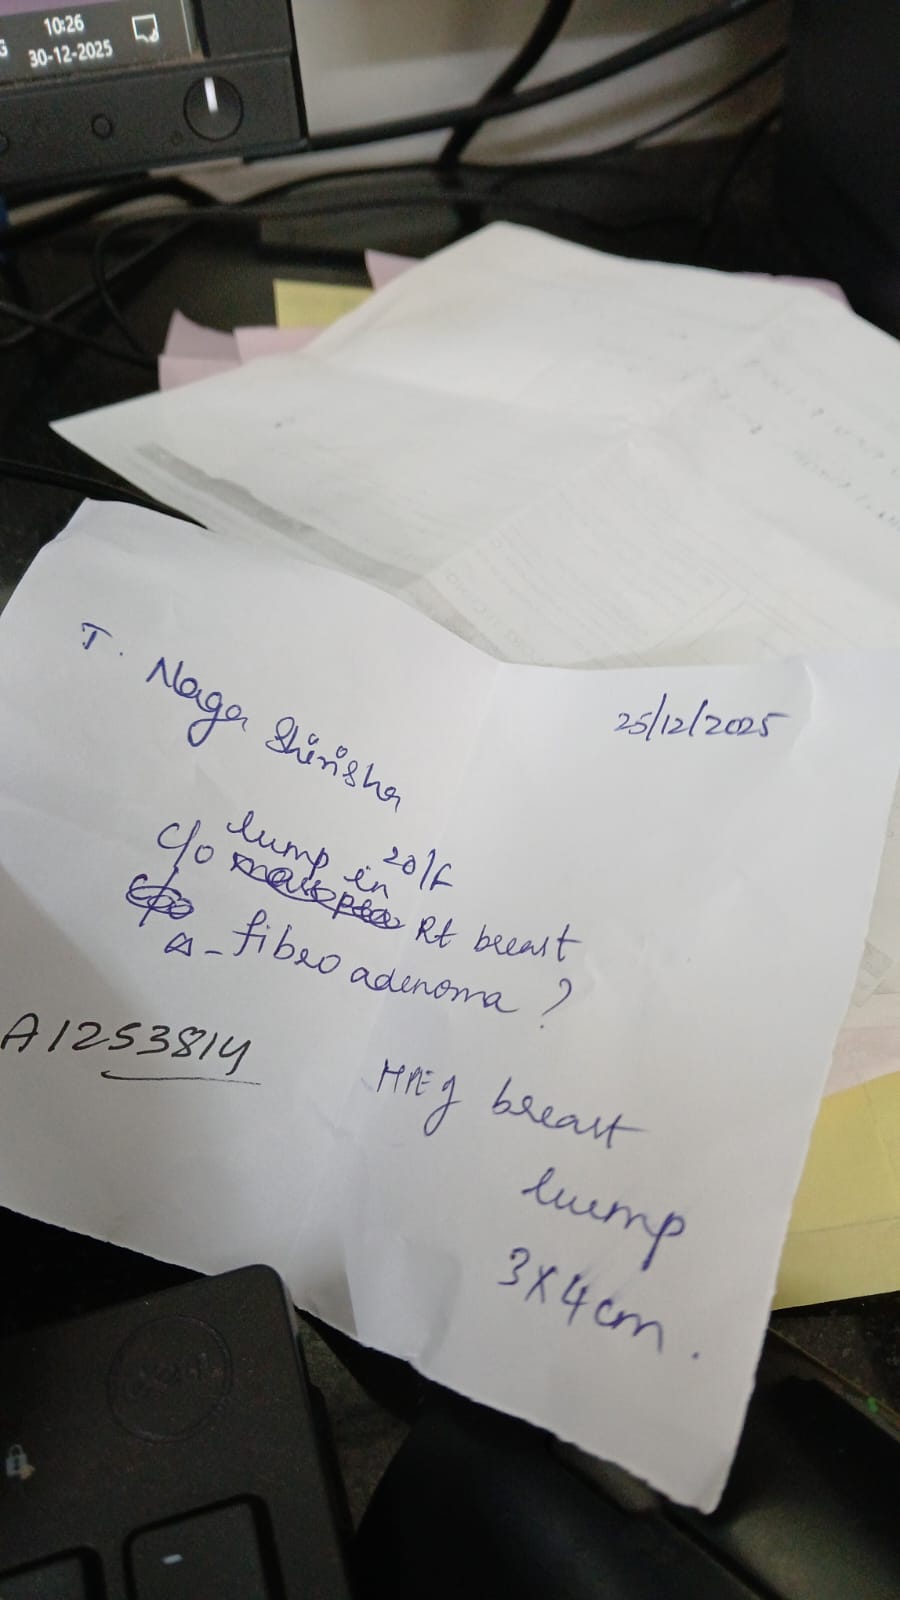 10:26
30-12-2025
T. Naga Shirisha
25/12/2025
20/F
c/o lump in Rt breast
Δ - fibro adenoma ?
A1253814
HPE of breast
lump
3X4cm.
DELL